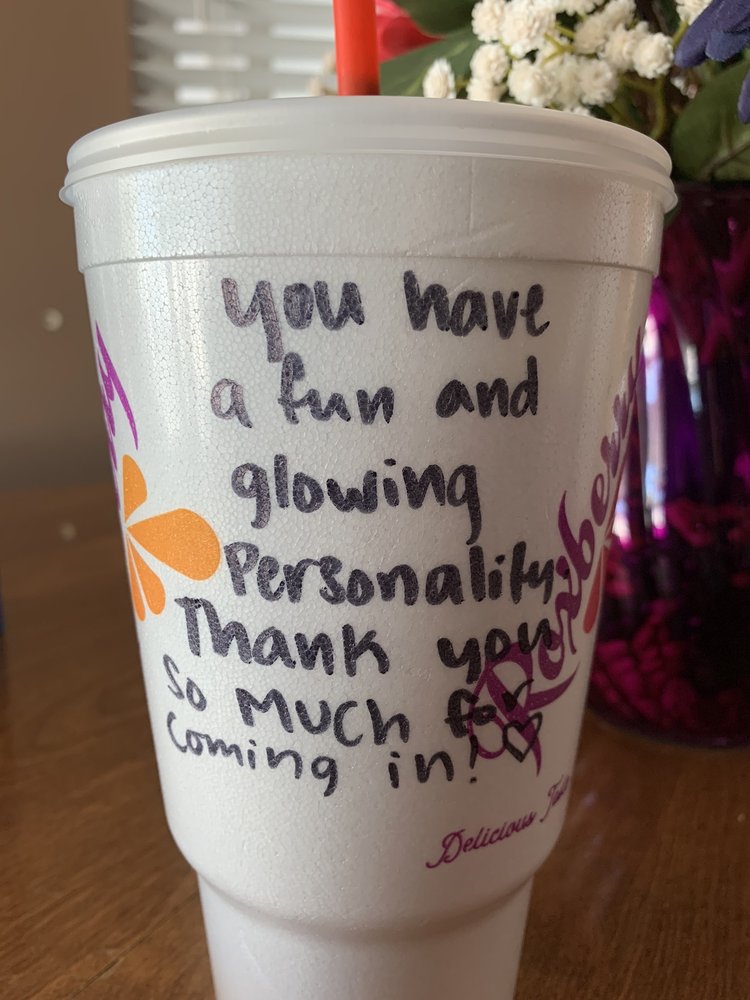 you have
a fun and
glowing
Personality
Thank you
so much for
coming in! ♡
Roxiberry
Delicious